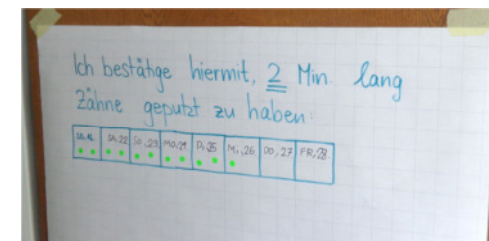 Ich bestätige hiermit, 2 Min. lang
Zähne geputzt zu haben:
SA, 22 So, 23 Mo, 24 Di, 25 Mi, 26 DO, 27 FR, 28